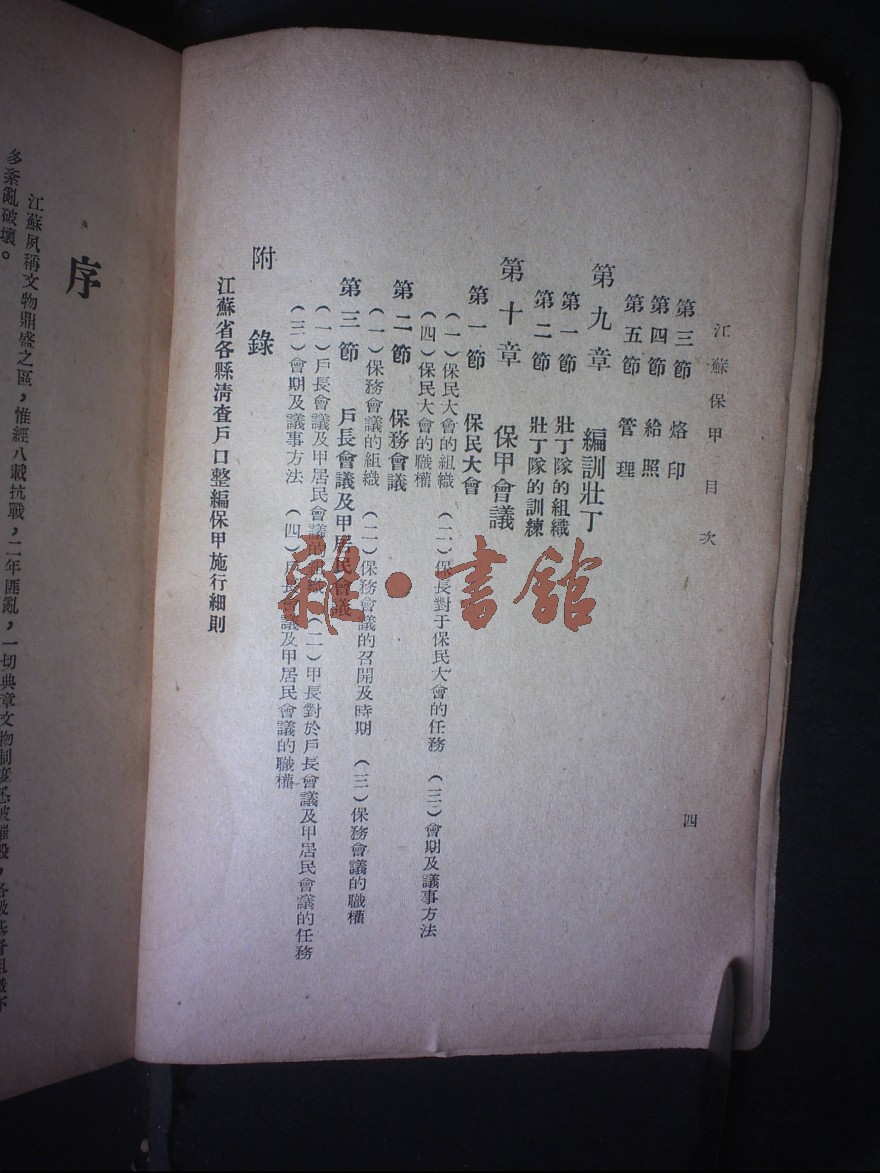 江蘇保甲 目次
四
第三節 烙印
第四節 給照
第五節 管理
第九章 編訓壯丁
第一節 壯丁隊的組織
第二節 壯丁隊的訓練
第十章 保甲會議
第一節 保民大會
（一）保民大會的組織 （二）保長對于保民大會的任務 （三）會期及議事方法
（四）保民大會的職權
第二節 保務會議
（一）保務會議的組織 （二）保務會議的召開及時期 （三）保務會議的職權
第三節 戶長會議及甲居民會議
（一）戶長會議及甲居民會議的組織 （二）甲長對於戶長會議及甲居民會議的任務
（三）會期及議事方法 （四）戶長會議及甲居民會議的職權
附錄
江蘇省各縣清查戶口整編保甲施行細則
雜·書館
序
江蘇夙稱文物鼎盛之區，惟經八載抗戰，二年匪亂，一切典章文物制度
多紊亂破壞。